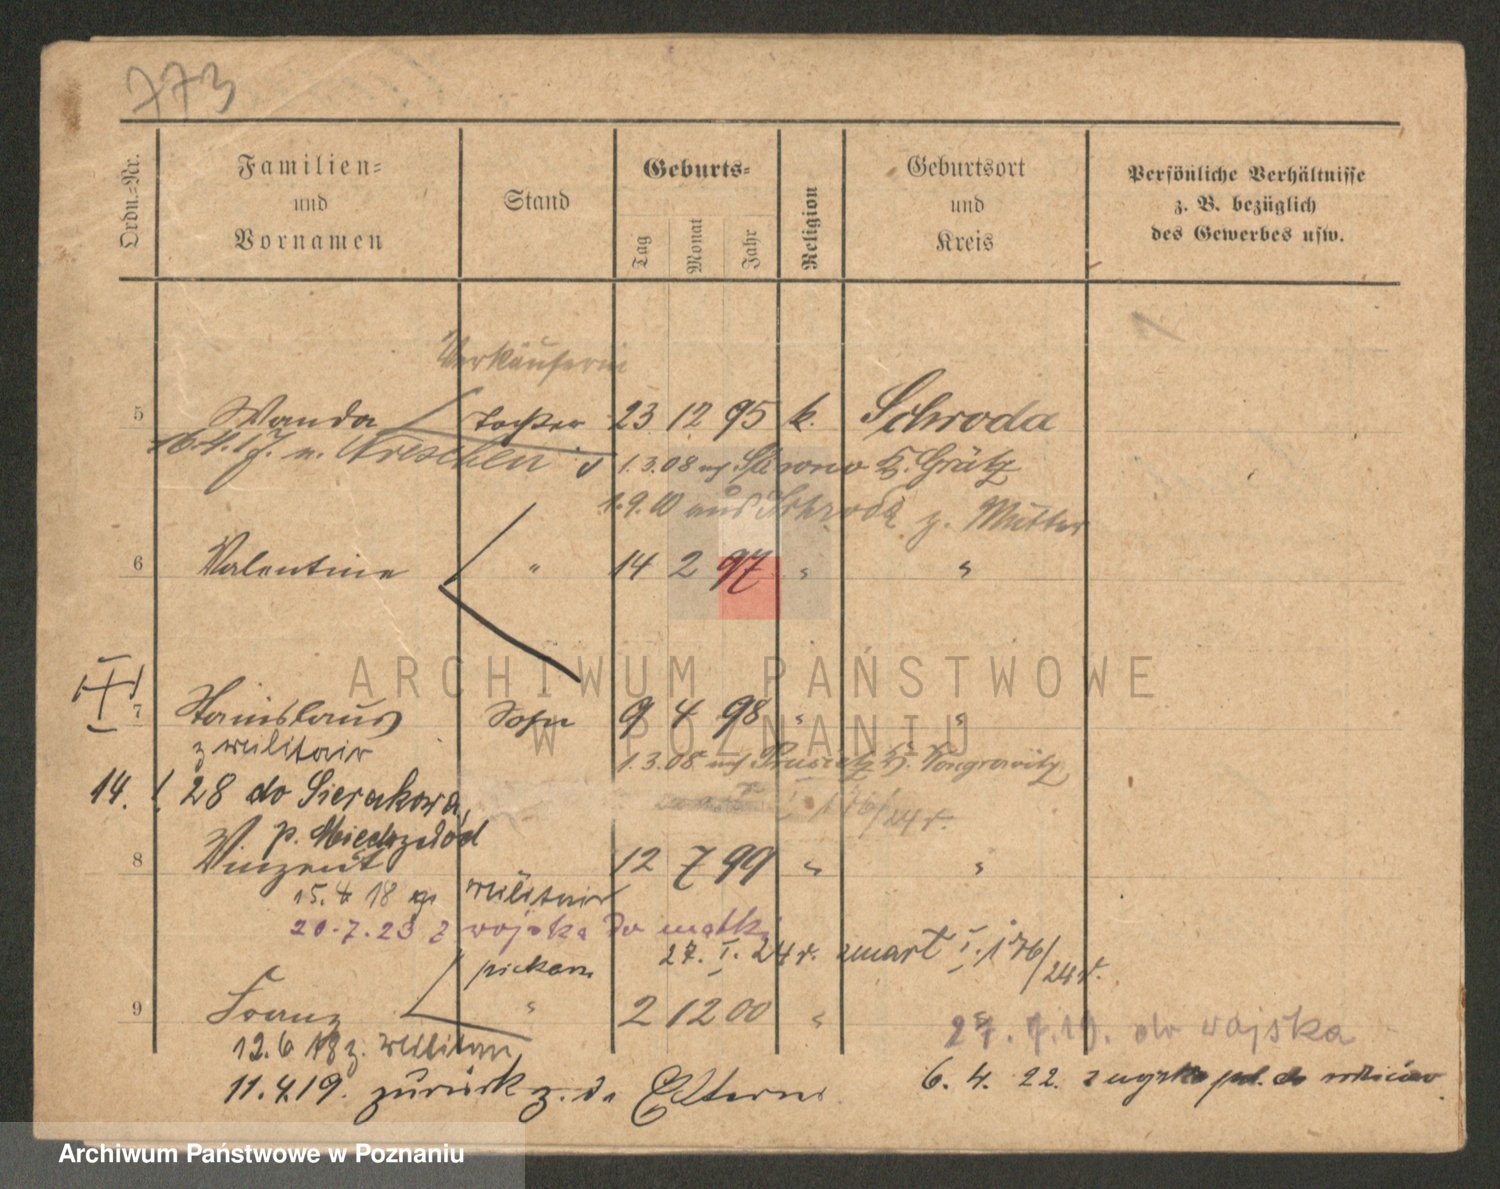 773
Ordn.=Nr.
Familien=
und
Vornamen
Stand
Geburts=
Tag
Monat
Jahr
Religion
Geburtsort
und
Kreis
Persönliche Verhältnisse
z. B. bezüglich
des Gewerbes usw.
Verkäuferin
5 Wanda Tochter 23 12 95 k. Schroda
16.4.17. n. Wreschen 1.3.08 Kr. Grätz
1.9.10 aus Schroda z. Mutter
6 Valentine " 14 2 97 " "
ARCHIWUM PAŃSTWOWE
W POZNANIU
7 Stanislaus Sohn 9 4 98 " "
z militair 1.3.08
14. 28 do Sierakowa
p. Międzychód
I. 176/24 r.
8 Vinzent 12 7 99 " "
15.4 18 militair
20.7.23 z wojska do matki
27. I. 24 r. zmarł I. 176/24 r.
9 Franz " 2 12 00 "
12.6 18 z. militair
27. 7.19. do wojska
11.4.19. zurück z. d. Eltern
6. 4. 22. z wojska
Archiwum Państwowe w Poznaniu